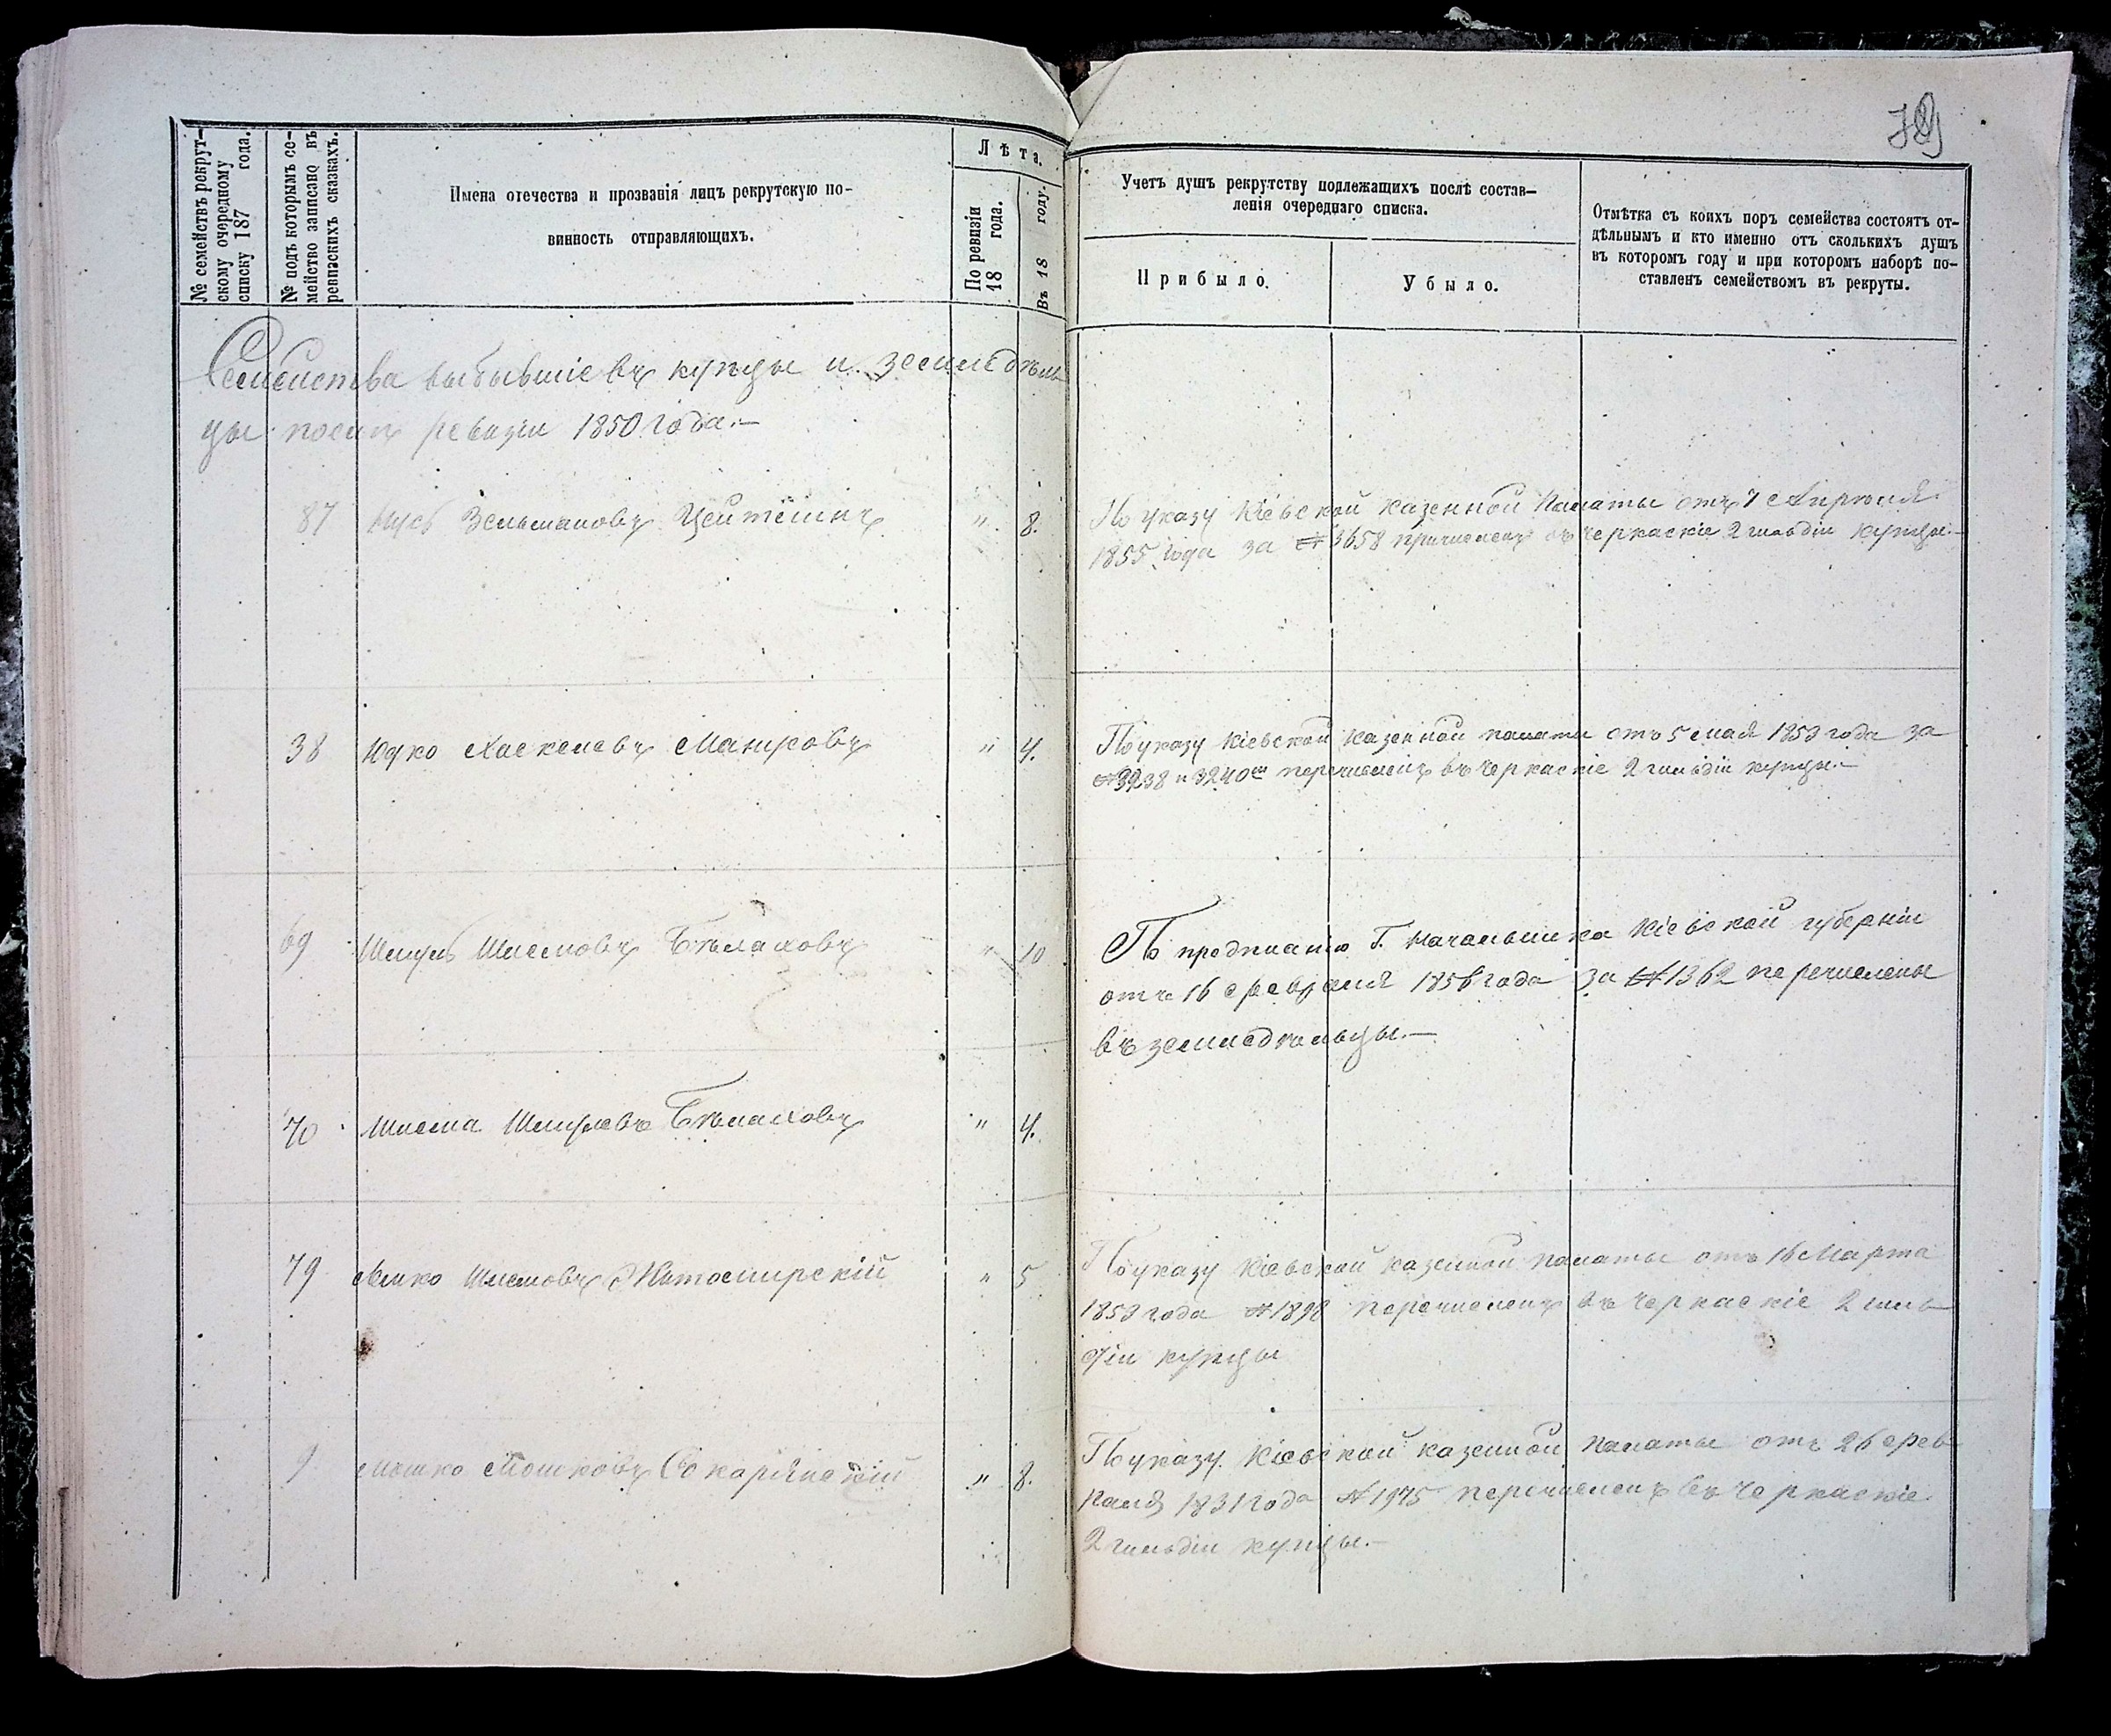 № семействъ рекрут-
скому очередному
списку 187 года.
№ подъ которымъ се-
мейство записано въ
ревизскихъ сказкахъ.
Имена отечества и прозванія лицъ рекрутскую по-
винность отправляющихъ.
Лѣта.
По ревизіи
18 года.
Въ 18 году.
Учетъ душъ рекрутству подлежащихъ послѣ состав-
ленія очереднаго списка.
Прибыло.
Убыло.
Отмѣтка съ коихъ поръ семейства состоятъ от-
дѣльнымъ и кто именно отъ сколькихъ душъ
въ которомъ году и при которомъ наборѣ по-
ставленъ семействомъ въ рекруты.
Семейства выбывшіе въ купцы и земледѣль
цы послѣ ревизіи 1850 года.—
87 Зельмановъ Цейтлинъ " 8.
По указу Кіевской казенной Палаты отъ 7 Апрѣля
1855 года за № 3658 причисленъ въ черкаскіе 2 гильдіи купцы.—
38 Юдко Хаскелевъ " 4.
По указу Кіевской Казенной палаты отъ 5 мая 1853 года за
№ 3238 и 3240 перечисленъ въ черкаскіе 2 гильдіи купцы.—
69 Шмуль Шлемовъ Бѣлаховъ " 10
По предписанію Г. Начальника Кіевской губерніи
отъ 16 февраля 1856 года за № 1362 перечислены
въ земледѣльцы.—
70 Шлема Шмулевъ Бѣлаховъ " 4.
79 Шлемовъ Житомирскій " 5
По указу Кіевской казенной палаты отъ 16 Марта
1853 года № 1898 перечисленъ въ Черкаскіе 2 гиль
діи купцы
9 Мошко Мошковъ " 8.
По указу Кіевской казенной палаты отъ 26 фев
раля 1831 года № 1975 перечисленъ въ Черкаскіе
2 гильдіи купцы.—